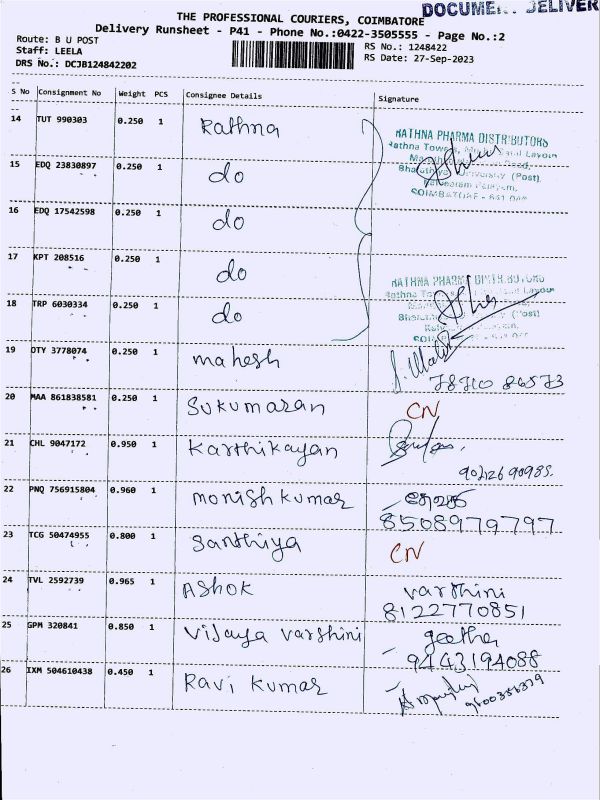 DOCUMENT DELIVER
THE PROFESSIONAL COURIERS, COIMBATORE
Delivery Runsheet - P41 - Phone No.:0422-3505555 - Page No.:2
Route: B U POST
RS No.: 1248422
Staff: LEELA
RS Date: 27-Sep-2023
DRS No.: DCJB124842202
S No Consignment No Weight PCS Consignee Details Signature
14 TUT 990303 0.250 1 Rathna
RATHNA PHARMA DISTRIBUTORS
15 EDQ 23830897 0.250 1 do
University (Post),
COIMBATORE - 641 046
16 EDQ 17542598 0.250 1 do
17 KPT 208516 0.250 1 do
RATHNA PHARMA DISTRIBUTORS
18 TRP 6030334 0.250 1 do
19 OTY 3778074 0.250 1 mahesh
78710 86573
20 MAA 861838581 0.250 1 Sukumaran CN
21 CHL 9047172 0.950 1 Karthikayan
22 PNQ 756915804 0.960 1 monish kumar
8508979797
23 TCG 50474955 0.800 1 Santhiya CN
24 TVL 2592739 0.965 1 Ashok varshini
8122770851
25 GPM 320841 0.850 1 Vijaya varshini geetha
9443194088
26 IXM 504610438 0.450 1 Ravi kumar